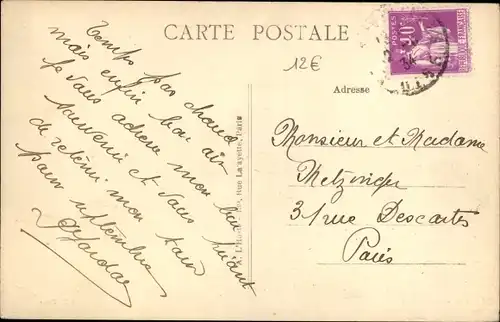 CARTE POSTALE
12€
Adresse
POSTES
40
RÉPUBLIQUE FRANÇAISE
34
Temps pas chaud
mais enfin bon air
Je vous adresse mon bien
souvenir et vous
de retenir mon tour
pour septembre
Rue Lafayette, Paris
Monsieur et Madame
Metzinger
31 rue Descartes
Paris